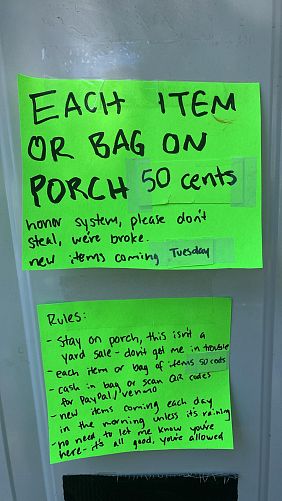 EACH ITEM
OR BAG ON
PORCH 50 cents
honor system, please don't
steal, we're broke.
new items coming Tuesday
Rules:
- Stay on porch, this isn't a
yard sale - don't get me in trouble
- each item or bag of items 50 cents
- cash in bag or scan QR codes
for PayPal/venmo
- new items coming each day
in the morning unless its raining
- no need to let me know you're
here - it's all good, you're allowed